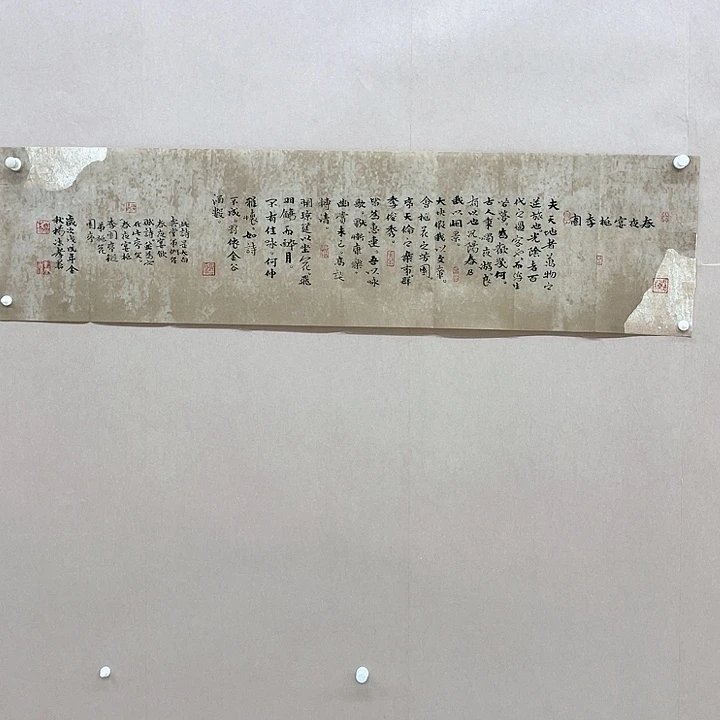 春夜宴桃李園
夫天地者萬物之
逆旅也光陰者百
代之過客也而浮生
若夢為歡幾何。
古人秉燭夜遊良
有以也況陽春召
我以烟景。
大块假我以文章。
會桃花之芳園。
序天倫之樂事群
季俊秀。
皆為惠連吾人咏
歌獨慚康樂。
幽賞未已。高談
轉清
開瓊筵以坐花飛
羽觴而醉月。
不有佳咏。何伸
雅懷。如詩
不成罰依金谷
酒數。
此詩是太白
春夜宴
春夜宴桃
李園
園序
歲次戊戌年金
秋楊書